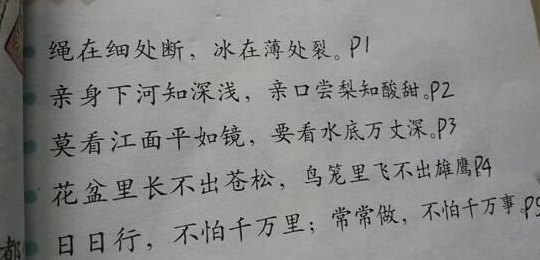 绳在细处断，冰在薄处裂。P1
亲身下河知深浅，亲口尝梨知酸甜。P2
莫看江面平如镜，要看水底万丈深。P3
花盆里长不出苍松，鸟笼里飞不出雄鹰P4
日日行，不怕千万里；常常做，不怕千万事。P5
都